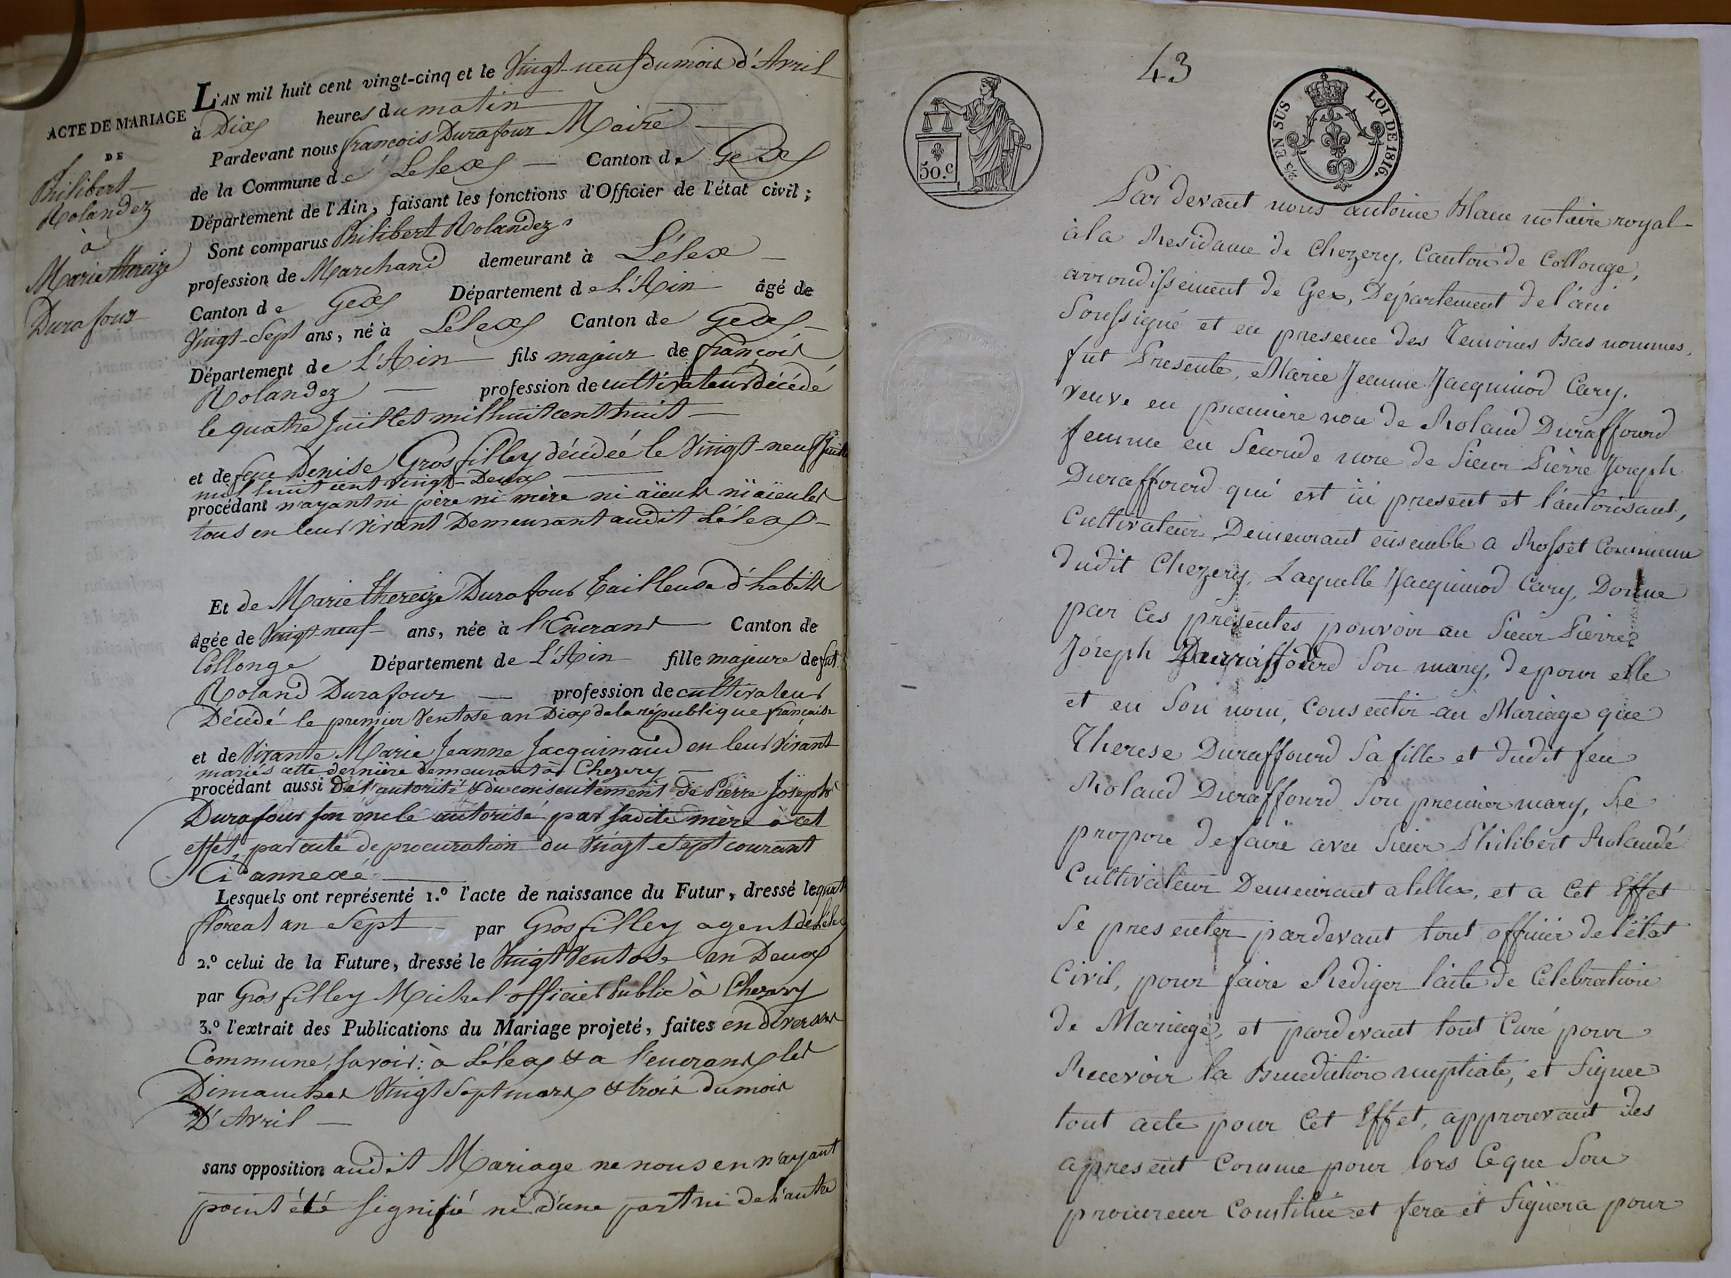 ACTE DE MARIAGE
DE
Philibert
Rolandez
à
Marie thereize
Durafour
L'AN mil huit cent vingt-cinq et le Vingt-neuf du mois d'Avril
à Dix heures du matin
Pardevant nous françois Durafour Maire
de la Commune de Lelex Canton de Gex
Département de l'Ain, faisant les fonctions d'Officier de l'état civil;
Sont comparus Philibert Rolandez
profession de Marchand demeurant à Lélex
Canton de Gex Département de L'Ain âgé de
Vingt-Sept ans, né à Lélex Canton de Gex
Département de L'Ain fils majeur de françois
Rolandez profession de cultivateur décédé
le quatre Juillet mil huit cent huit
et de feue Denise Grosfilley décédée le Vingt-neuf Juillet
mil huit cent vingt-Deux
procédant n'ayant ni père ni mère ni aïeuls ni aïeules
tous en leur vivant Demeurant audit Lélex
Et de Marie thereize Durafour tailleuse d'habits
âgée de Vingt-neuf ans, née à l'Encrans Canton de
Collonge Département de L'Ain fille majeure de feu
Roland Durafour profession de cultivateur
Décédé le premier Ventose an Dix de la république française
et de Vivante Marie Jeanne Jacquinaud en leur vivant
mariés cette dernière demeurant à Chezery
procédant aussi De l'autorité & du consentement de Pierre Joseph
Durafour son oncle autorisé par sadite mère à cet
effet, par acte de procuration du Vingt-sept courant
Ci annexé
Lesquels ont représenté 1.º l'acte de naissance du Futur, dressé le quatre
floreal an Sept par Grosfilley agent de Lélex
2.º celui de la Future, dressé le Vingt Ventose an Deux
par Grosfilley Michel officier public à Chezery
3.º l'extrait des Publications du Mariage projeté, faites en diverses
Commune, savoir: à Lélex & a l'encrans les
Dimanches Vingt Sept mars & trois du mois
D'Avril
sans opposition audit Mariage ne nous en n'ayant
point été signifié ni d'une part ni de l'autre
43
50.c
EN SUS LOI DE 1816.
Par devant nous antoine Blanc notaire royal
à la Residance de Chezery, Canton de Collonge,
arrondissement de Gex, Département de l'ain
Soussigné et en presence des Temoins Bas nommes,
fut Presente, Marie Jeanne Jacquinod Cary,
veuve en premiere noce de Roland Duraffourd
femme en Seconde noce de Sieur Pierre Joseph
Duraffourd qui est ici present et l'autorisant,
Cultivateur, Demeurant ensemble a Rosset Commune
dudit Chezery, Laquelle Jacquinod Cary, Donne
par Ces presentes pouvoir au Sieur Pierre
Joseph Duraffourd Son mary, de pour elle
et en Son nom, Consentir au Mariage que
Therese Duraffourd Sa fille et dudit feu
Roland Duraffourd Son premier mary, Se
propose de faire avec Sieur Philibert Rolandé
Cultivateur Demeurant a lellex, et a Cet Effet
Se presenter pardevant tout officier de l'état
Civil, pour faire Rediger l'acte de Celebration
de Mariage, et pardevant tout Curé pour
Recevoir la Benediction nuptiale, et Signer
tout acte pour Cet Effet, approuvant des
apresent Comme pour lors Ce que Son
procureur Constitué et fera et Signera pour